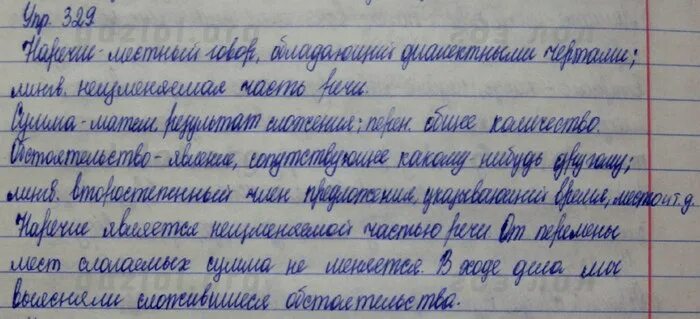 Упр. 329
Наречие - местный говор, обладающий диалектными чертами;
лингв. неизменяемая часть речи.
Сумма - матем. результат сложения; перен. общее количество.
Обстоятельство - явление, сопутствующее какому-нибудь другому;
лингв. второстепенный член предложения, указывающий время, место и т.д.
Наречие является неизменяемой частью речи. От перемены
мест слагаемых сумма не меняется. В ходе дела мы
выяснили сложившиеся обстоятельства.